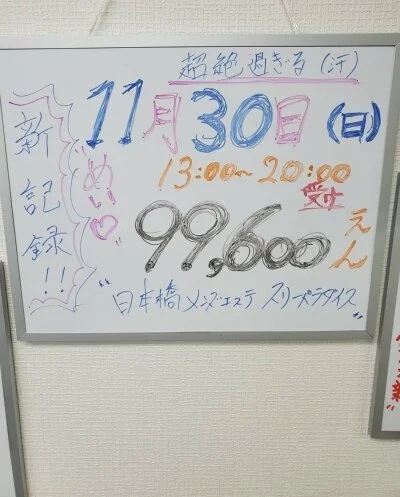 超絶過ぎる(汗)
11月30日(日)
新記録!!
"めい♡"
13:00~20:00
受止
99,600えん
"日本橋メンズエステ スリーパラダイス"